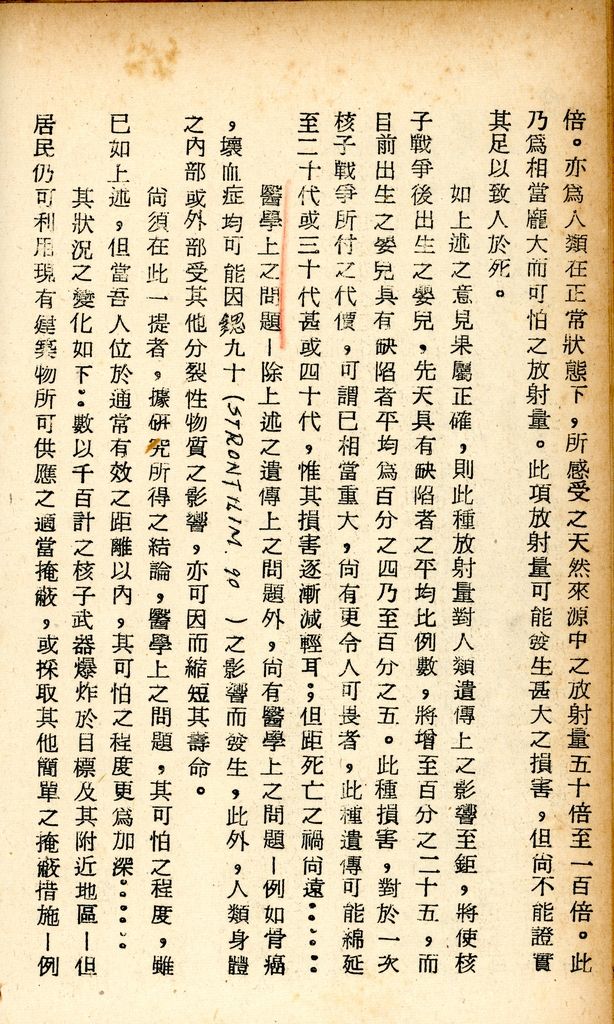 倍。亦為人類在正常狀態下，所感受之天然來源中之放射量五十倍至一百倍。此
乃為相當龐大而可怕之放射量。此項放射量可能發生甚大之損害，但尚不能證實
其足以致人於死。
如上述之意見果屬正確，則此種放射量對人類遺傳上之影響至鉅，將使核
子戰爭後出生之嬰兒，先天具有缺陷者之平均比例數，將增至百分之二十五，而
目前出生之嬰兒具有缺陷者平均為百分之四乃至百分之五。此種損害，對於一次
核子戰爭所付之代價，可謂已相當重大，尚有更令人可畏者，此種遺傳可能綿延
至二十代或三十代甚或四十代，惟其損害逐漸減輕耳；但距死亡之禍尚遠……
醫學上之問題—除上述之遺傳上之問題外，尚有醫學上之問題—例如骨癌
，壞血症均可能因鍶九十（STRONTHIM. 90）之影響而發生，此外，人類身體
之內部或外部受其他分裂性物質之影響，亦可因而縮短其壽命。
尚須在此一提者，據研究所得之結論，醫學上之問題，其可怕之程度，雖
已如上述，但當吾人位於通常有效之距離以內，其可怕之程度更為加深……
其狀況之變化如下：數以千百計之核子武器爆炸於目標及其附近地區—但
居民仍可利用現有建築物所可供應之適當掩蔽，或採取其他簡單之掩蔽措施—例